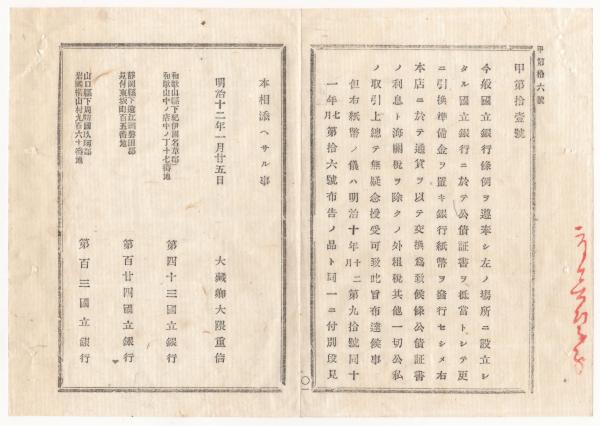 甲第拾六號
甲第拾壹號
今般國立銀行條例ヲ遵奉シ左ノ場所ニ設立シ
タル國立銀行ニ於テ公債証書ヲ抵當トシテ更
ニ引換準備金ヲ置キ銀行紙幣ヲ發行セシメ右
本店ニ於テ通貨ヲ以テ交換爲致候條公債証書
ノ利息ト海關稅ヲ除クノ外租稅其他一切公私
ノ取引上總テ無疑念授受可致此旨布達候事
但右紙幣ノ儀ハ明治十年十二月第九拾號同十
一年七月第拾六號布告ノ品ト同一ニ付別段見
本相添ヘサル事
明治十二年一月廿五日
大藏卿大隈重信
和歌山縣下紀伊國名草郡
和歌山中ノ店中ノ丁十七番地
第四十三國立銀行
靜岡縣下遠江國磐田郡
見付東坂町百五番地
第百廿四國立銀行
山口縣下周防國玖珂郡
岩國橫山村九百六十番地
第百三國立銀行